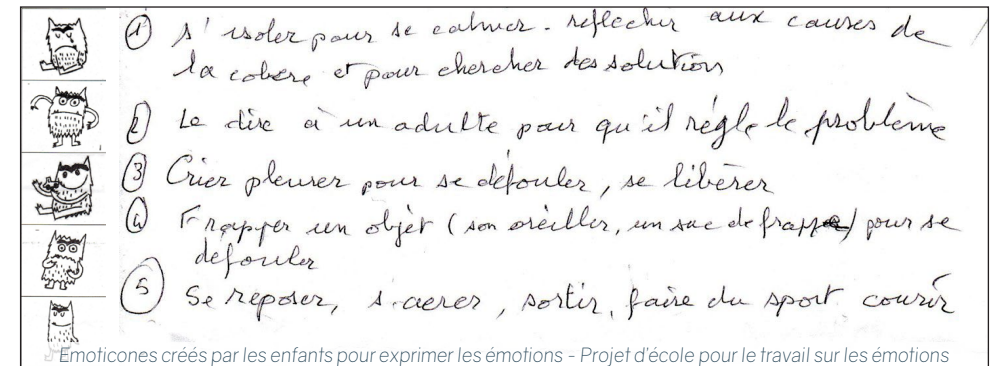 ① s'isoler pour se calmer - reflechir aux causes de
la colère et pour chercher des solutions
② Le dire à un adulte pour qu'il règle le problème
③ Crier pleurer pour se défouler, se libérer
④ Frapper un objet (son oreiller, un sac de frappe) pour se
defouler
⑤ Se reposer, s'aerer, sortir, faire du sport courir
Emoticones créés par les enfants pour exprimer les émotions - Projet d'école pour le travail sur les émotions